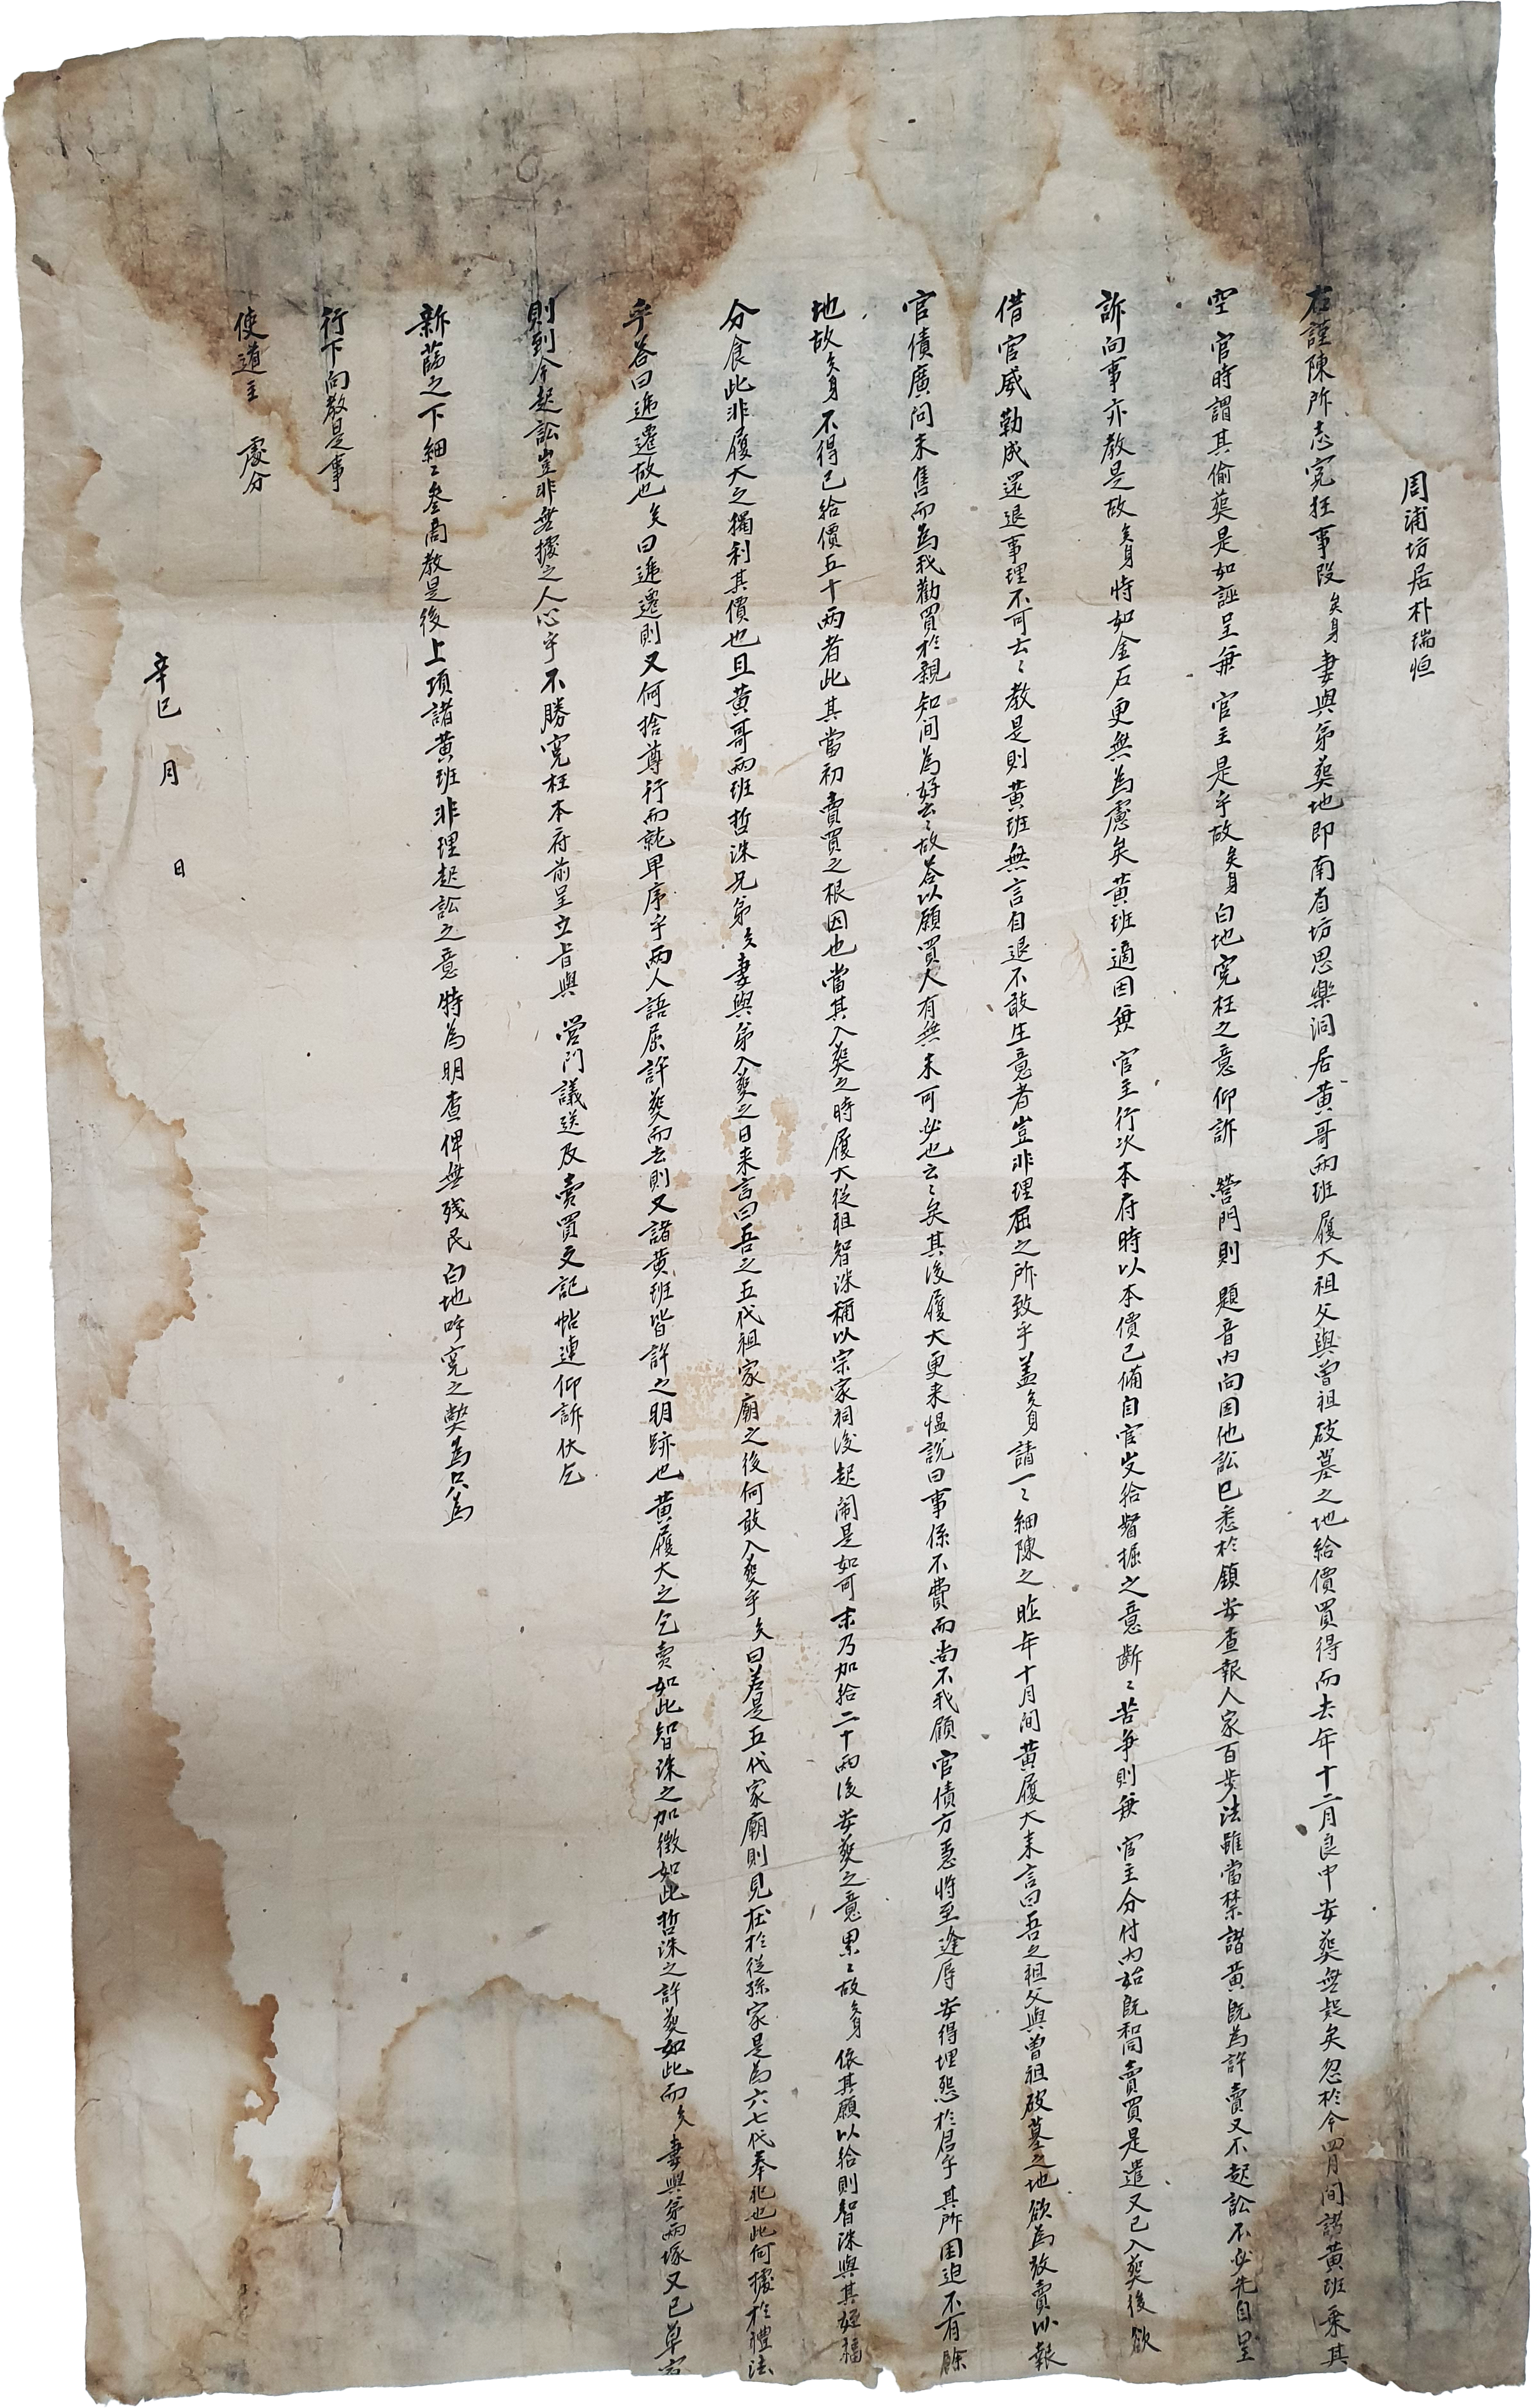 周浦坊居朴瑞恒
右謹陳所志寃狂事段矣身妻與弟葬地即南省坊思樂洞居黃哥兩班履大祖父與曾祖破墓之地給價買得而去年十二月良中安葬無疑矣忽於今四月間諸黃班乘其
空 官時謂其偷葬是如誣呈兼 官主是乎故矣身白地寃枉之意仰訴 營門則 題音內向因他訟已悉於鎮安查報人家百步法雖當禁諸黃既爲許賣又不起訟不必先自呈
訴向事亦教是故矣身恃如金石更無爲慮矣黃班適因兼 官主行次本府時以本價已備自官出給督掘之意斷〻苦爭則兼 官主分付內始既和同賣買是遣又已入葬後欲
借官威勒成還退事理不可云〻教是則黃班無言自退不敢生意者豈非理屈之所致乎盖矣身請一〻細陳之昨年十月間黃履大來言曰吾之祖父與曾祖破墓之地欲爲放賣以報
官債廣问未售而爲我勸買於親知间爲好云〻故答以願買人有無未可必也云〻矣其後履大更來愠説曰事係不費而尚不我顧 官債方急將至逢辱 安得埋怨於君乎其所困迫不有餘
地故矣身不得已給價五十兩者此其當初賣買之根因也當其入葬之時履大從祖智洙稱以宗家祠後起鬧是如可末乃加給二十兩後安葬之意累〻故矣身依其願以給則智洙與其姪福
分食此非履大之獨利其價也且黃哥兩班哲洙兄弟矣妻與弟入葬之日來言曰吾之五代祖家廟之後何敢入葬乎矣曰若是五代家廟則見在於從孫家是爲六七代奉祀也此何據於禮法
乎答曰遞遷故也矣曰遞遷則又何捨尊行而就卑序乎兩人語屈許葬而去則又諸黃班皆許之明跡也黃履大之乞賣如此智洙之加徵如此哲洙之許葬如此而矣妻與弟兩塚又已草宿
則到今起訟豈非無據之人心乎不勝寃枉本府前呈立旨與 營門議送及賣買文記帖連仰訴伏乞
新莅之下細〻叅商敎是後上項諸黃班非理起訟之意特爲明查俾無殘民白地呼寃之獘爲只爲
行下向敎是事
使道主 處分
辛巳 月 日